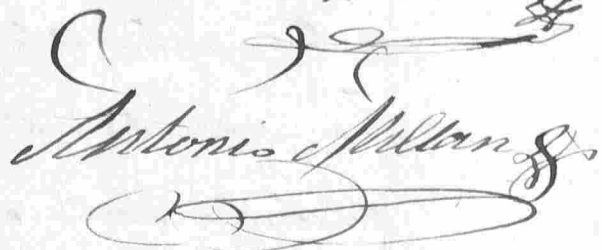 Antonio Millan